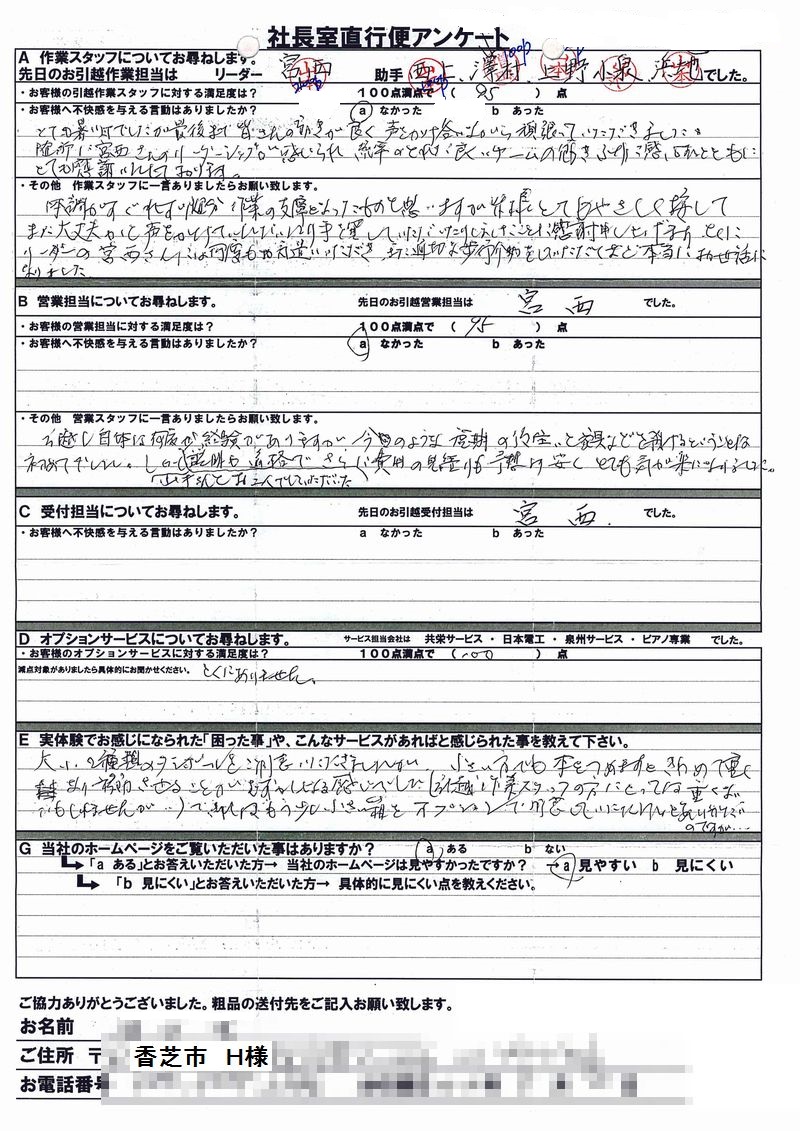 社長室直行便アンケート
A 作業スタッフについてお尋ねします。
先日のお引越作業担当は リーダー 宮西 助手 西上、澤村、上野、小泉、浜地 でした。
・お客様の引越作業スタッフに対する満足度は? 100点満点で ( 95 ) 点
・お客様へ不快感を与える言動はありましたか? a なかった b あった
とても暑い日でしたが最後まで皆さんの動きが良く声をかけ合いながら頑張っていただきました
随所に宮西さんのリーダーシップが感じられ 統率のとれた良いチームの働きぶりに感心するとともに
とても感謝いたしております。
・その他 作業スタッフに一言ありましたらお願い致します。
体調がすぐれず 作業の支障となったものと思いますが 皆様とてもやさしく接して
また大丈夫かと声をかけていただいたり手を貸していただいたりしたことに感謝申し上げます とくに
リーダーの宮西さんには何度もお気遣いいただき また適切な歩行介助をしていただくなど本当にお世話に
なりました
B 営業担当についてお尋ねします。 先日のお引越営業担当は 宮西 でした。
・お客様の営業担当に対する満足度は? 100点満点で ( 95 ) 点
・お客様へ不快感を与える言動はありましたか? a なかった b あった
・その他 営業スタッフに一言ありましたらお願い致します。
引越し自体は何度か経験がありますが 今回のような 家具などを預けるということは
初めてでした。しかし説明も適格で さらに費用の見積りも予想より安く とても気が楽になりました。
C 受付担当についてお尋ねします。 先日のお引越受付担当は 宮西 でした。
・お客様へ不快感を与える言動はありましたか? a なかった b あった
D オプションサービスについてお尋ねします。 サービス担当会社は 共栄サービス ・ 日本電工 ・ 泉州サービス ・ ピアノ専業 でした。
・お客様のオプションサービスに対する満足度は? 100点満点で ( 100 ) 点
減点対象がありましたら具体的にお聞かせください。 とくにありません。
E 実体験でお感じになられた「困った事」や、こんなサービスがあればと感じられた事を教えて下さい。
大小2種類のダンボールをご用意いただきましたが、小さい方でも本をつめますときわめて重く
移動させることがむずかしくなる感じでした(引越し作業スタッフの方にとっては重くない
かもしれませんが…)できればもう少し小さい箱をオプションで用意していただければと
のですが…
G 当社のホームページをご覧いただいた事はありますか? a ある b ない
「a ある」とお答えいただいた方→ 当社のホームページは見やすかったですか? →a 見やすい b 見にくい
「b 見にくい」とお答えいただいた方→ 具体的に見にくい点を教えください。
ご協力ありがとうございました。粗品の送付先をご記入お願い致します。
お名前
ご住所 〒 香芝市 H様
お電話番号